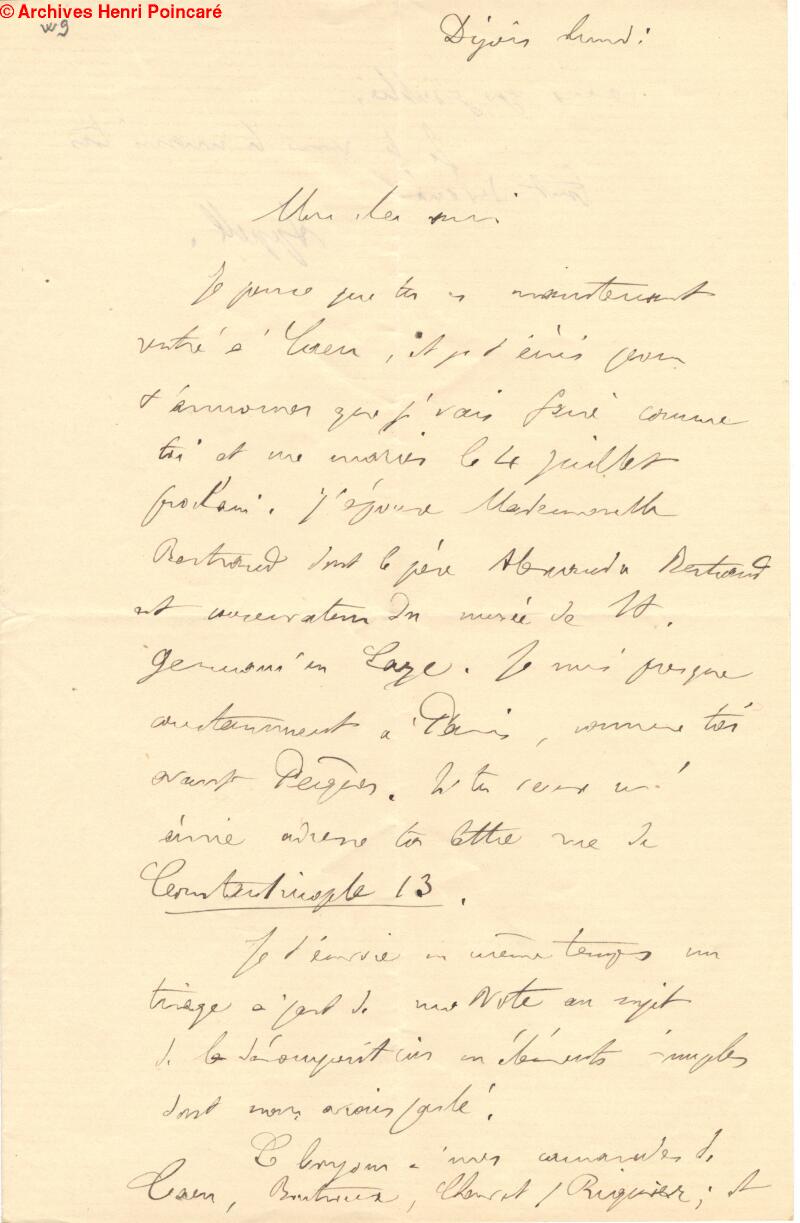 © Archives Henri Poincaré
Dijon lundi
Mon cher ami
Je pense que tu es maintenant
rentré à Caen, et je t'écris pour
t'annoncer que je vais faire comme
toi et me marier le 4 juillet
prochain. J'épouse Mademoiselle
Bertrand dont le père Alexandre Bertrand
est conservateur du musée de St.
Germain en Laye. Je suis presque
constamment à Paris, comme toi
avant Pâques. Si tu veux m'
écrire adresse ta lettre rue de
Constantinople 13.
Je t'envoie en même temps un
tirage à part de ma Note au sujet
de la décomposition en éléments simples
dont nous avions parlé.
Le bonjour à mes camarades de
Caen, Boutroux, / Riquier; et